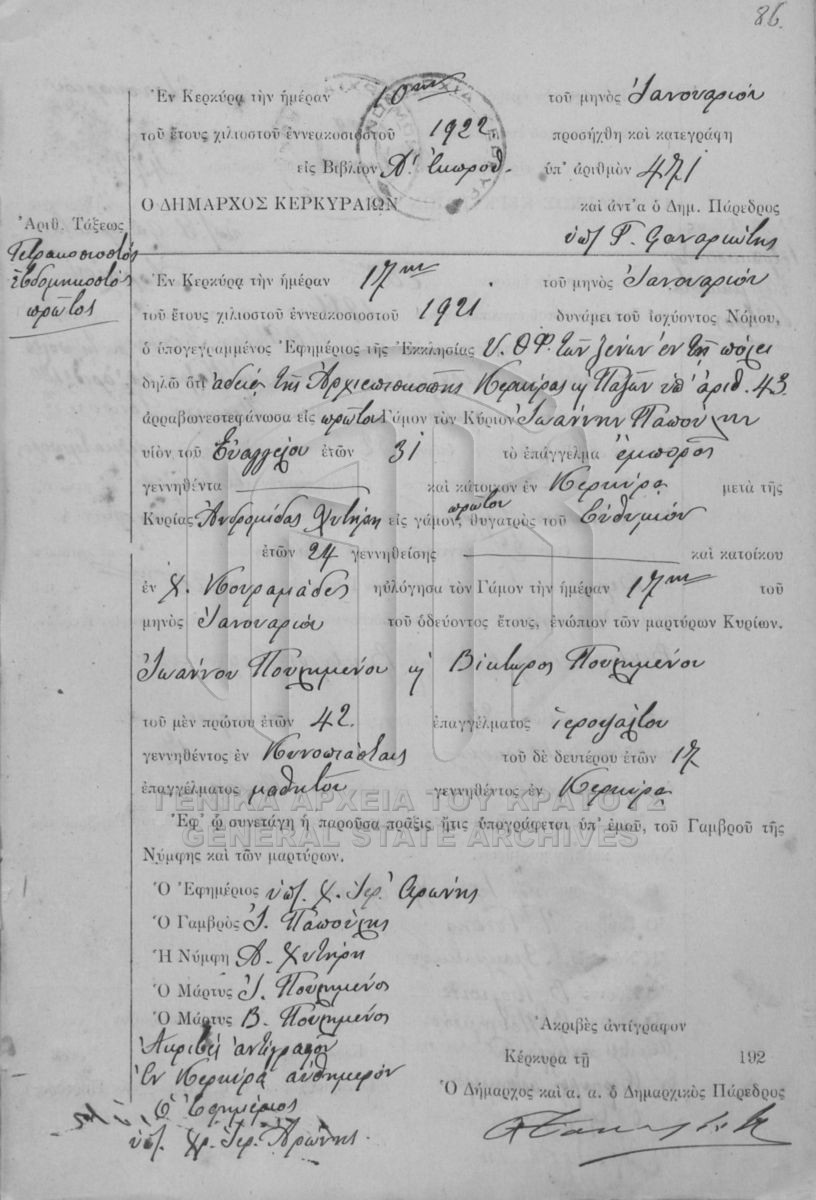 86.
Ἐν Κερκύρᾳ τὴν ἡμέραν 10ην τοῦ μηνὸς Ἰανουαρίου
τοῦ ἔτους χιλιοστοῦ ἐννεακοσιοστοῦ 1922 προσήχθη καὶ κατεγράφη
εἰς Βιβλίον Α' ἐκπροθ. ὑπ' ἀριθμὸν 471
Ο ΔΗΜΑΡΧΟΣ ΚΕΡΚΥΡΑΙΩΝ καὶ ἀντ'α ὁ Δημ. Πάρεδρος
ὑπ. Φαναριώτης
Ἀριθ. Τάξεως
Τετρακοσιοστός
Ἑβδομηκοστός
πρῶτος
Ἐν Κερκύρᾳ τὴν ἡμέραν 17ην τοῦ μηνὸς Ἰανουαρίου
τοῦ ἔτους χιλιοστοῦ ἐννεακοσιοστοῦ 1921 δυνάμει τοῦ ἰσχύοντος Νόμου,
ὁ ὑπογεγραμμένος Ἐφημέριος τῆς Ἐκκλησίας Υ. Θ. τῶν Ξένων ἐν τῇ πόλει
δηλῶ ὅτι ἀδείᾳ τῆς Ἀρχιεπισκοπῆς Κερκύρας κ Παξῶν ὑπ' ἀριθ. 43
ἀρραβωνεστεφάνωσα εἰς πρῶτον Γάμον τὸν Κύριον Ἰωάννην Παπούλην
υἱὸν τοῦ Εὐαγγέλου ἐτῶν 31 τὸ ἐπάγγελμα ἔμπορος
γεννηθέντα καὶ κάτοικον ἐν Κερκύρᾳ μετὰ τῆς
Κυρίας Ἀνδρομίδας Χυτήρη εἰς γάμον πρῶτον, θυγατρὸς τοῦ Εὐθυμίου
ἐτῶν 24 γεννηθείσης καὶ κατοίκου
ἐν Χ. Κουραμάδες ηὐλόγησα τὸν Γάμον τὴν ἡμέραν 17ην τοῦ
μηνὸς Ἰανουαρίου τοῦ ὁδεύοντος ἔτους, ἐνώπιον τῶν μαρτύρων Κυρίων.
Ἰωάννου Πουλημένου κ Βίκτωρος Πουλημένου
τοῦ μὲν πρώτου ἐτῶν 42 ἐπαγγέλματος ἱεροψάλτου
γεννηθέντος ἐν Κυνοπιάσταις τοῦ δὲ δευτέρου ἐτῶν 17
ἐπαγγέλματος μαθητοῦ γεννηθέντος ἐν Κερκύρᾳ
ΓΕΝΙΚΑ ΑΡΧΕΙΑ ΤΟΥ ΚΡΑΤΟΥΣ
Ἐφ' ᾧ συνετάγη ἡ παροῦσα πρᾶξις ἥτις ὑπογράφεται ὑπ' ἐμοῦ, τοῦ Γαμβροῦ τῆς
GENERAL STATE ARCHIVES
Νύμφης καὶ τῶν μαρτύρων.
Ὁ Ἐφημέριος ὑπ. Χ. Ἱερ. Ἀρώνης
Ὁ Γαμβρὸς Ἰ. Παπούλης
Ἡ Νύμφη Α. Χυτήρη
Ὁ Μάρτυς Ἰ. Πουλημένος
Ὁ Μάρτυς Β. Πουλημένος
Ἀκριβὲς ἀντίγραφον
Ἐν Κερκύρᾳ αὐθημερόν
Ὁ Ἐφημέριος
ὑπ. Χρ. Ἱερ. Ἀρώνης.
Ἀκριβὲς ἀντίγραφον
Κέρκυρα τῇ 192
Ὁ Δήμαρχος καὶ α. α. ὁ Δημαρχικὸς Πάρεδρος